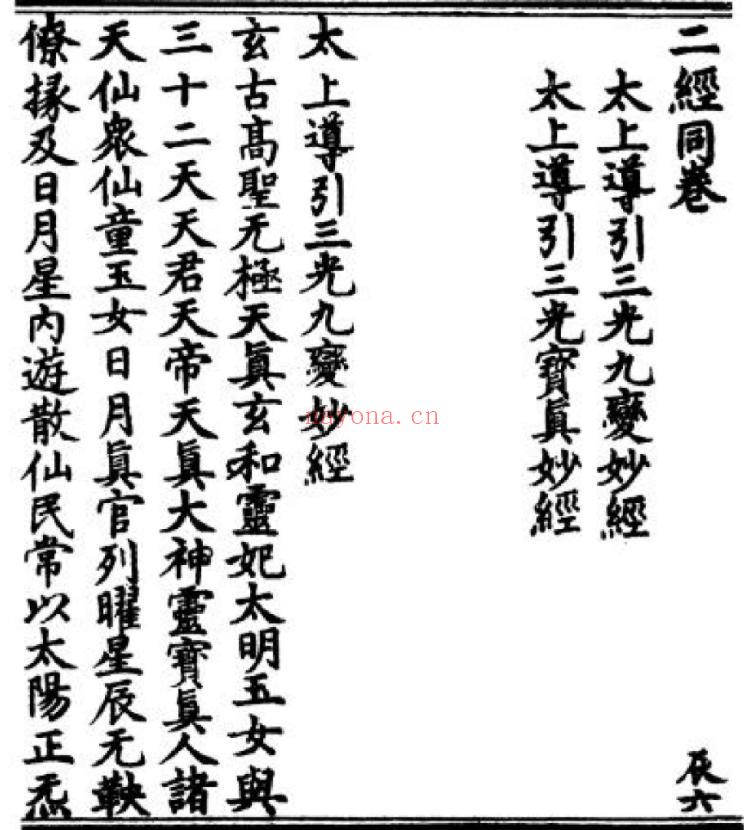 二經同卷 辰六
太上導引三光九變妙經
太上導引三光寶眞妙經
太上導引三光九變妙經
玄古髙聖无極天眞玄和靈妃太明五女與
三十二天天君天帝天眞大神靈寶眞人諸
天仙衆仙童玉女日月眞官列曜星辰无鞅
僚掾及日月星內遊散仙民常以太陽正炁
nayona.cn